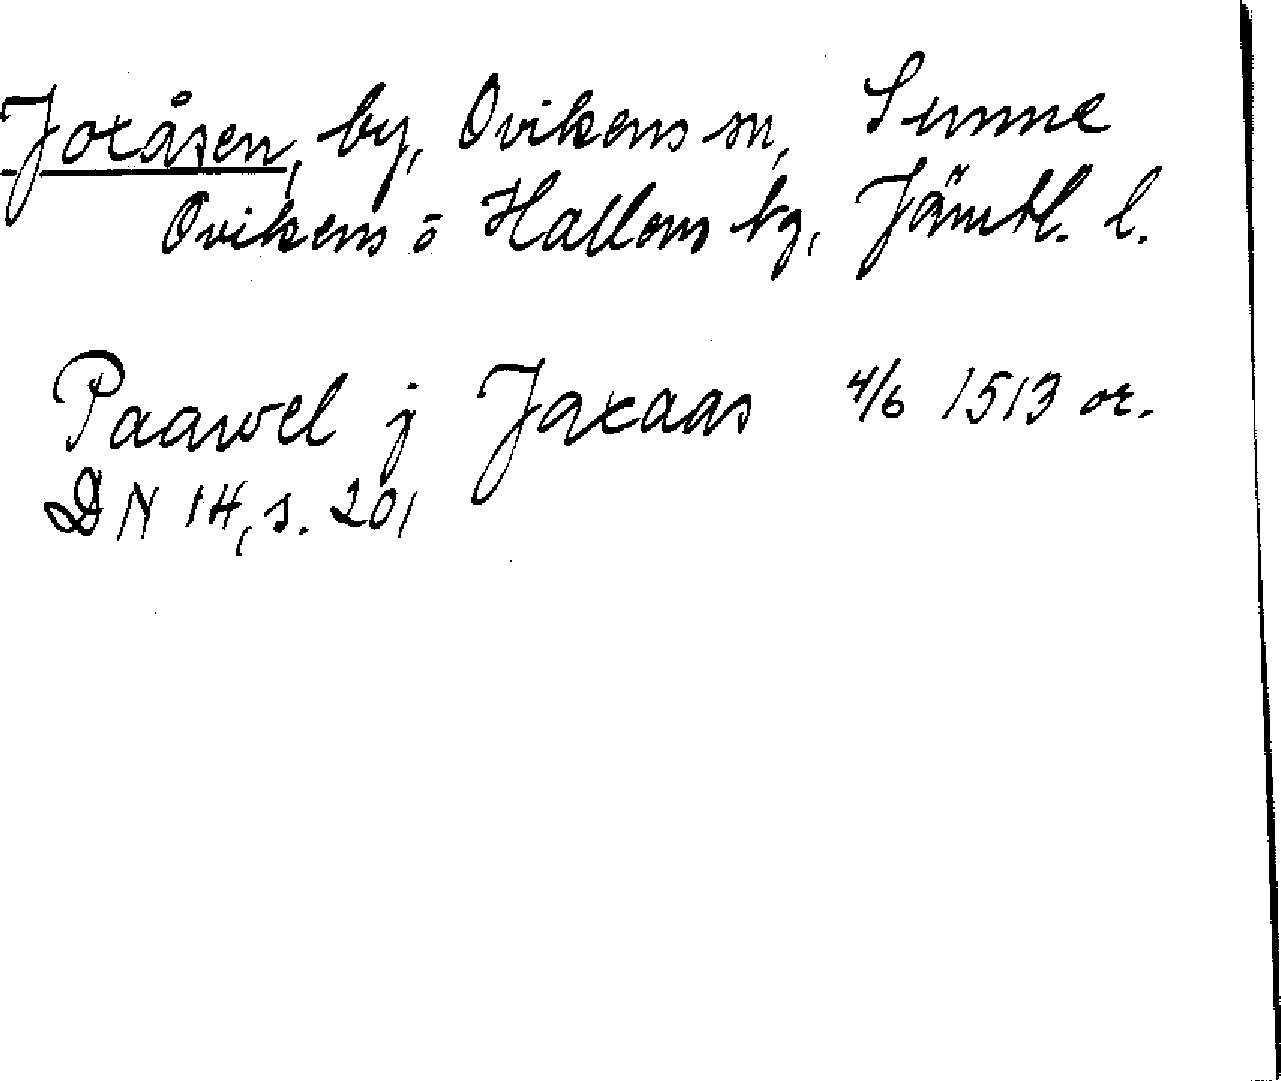 Joxåsen, by, Ovikens sn, Sunne
Ovikens o Hallens tg, Jämtl. l.
Paawel j Jaxaas 4/6 1513 or.
DN 14, s. 201